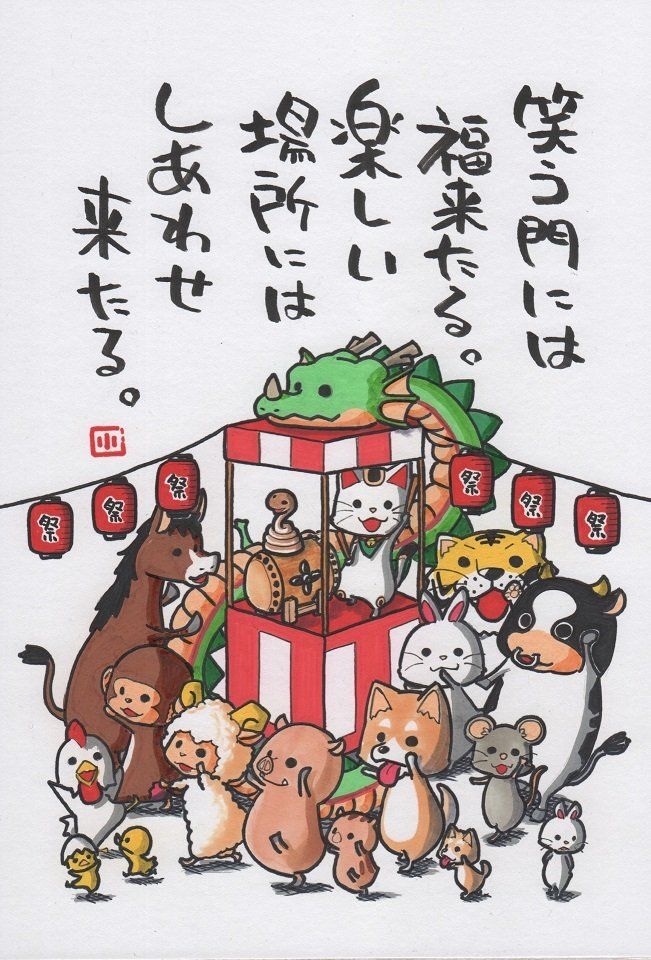 笑う門には
福来たる。
楽しい
場所には
しあわせ
来たる。
祭
祭
祭
祭
祭
祭